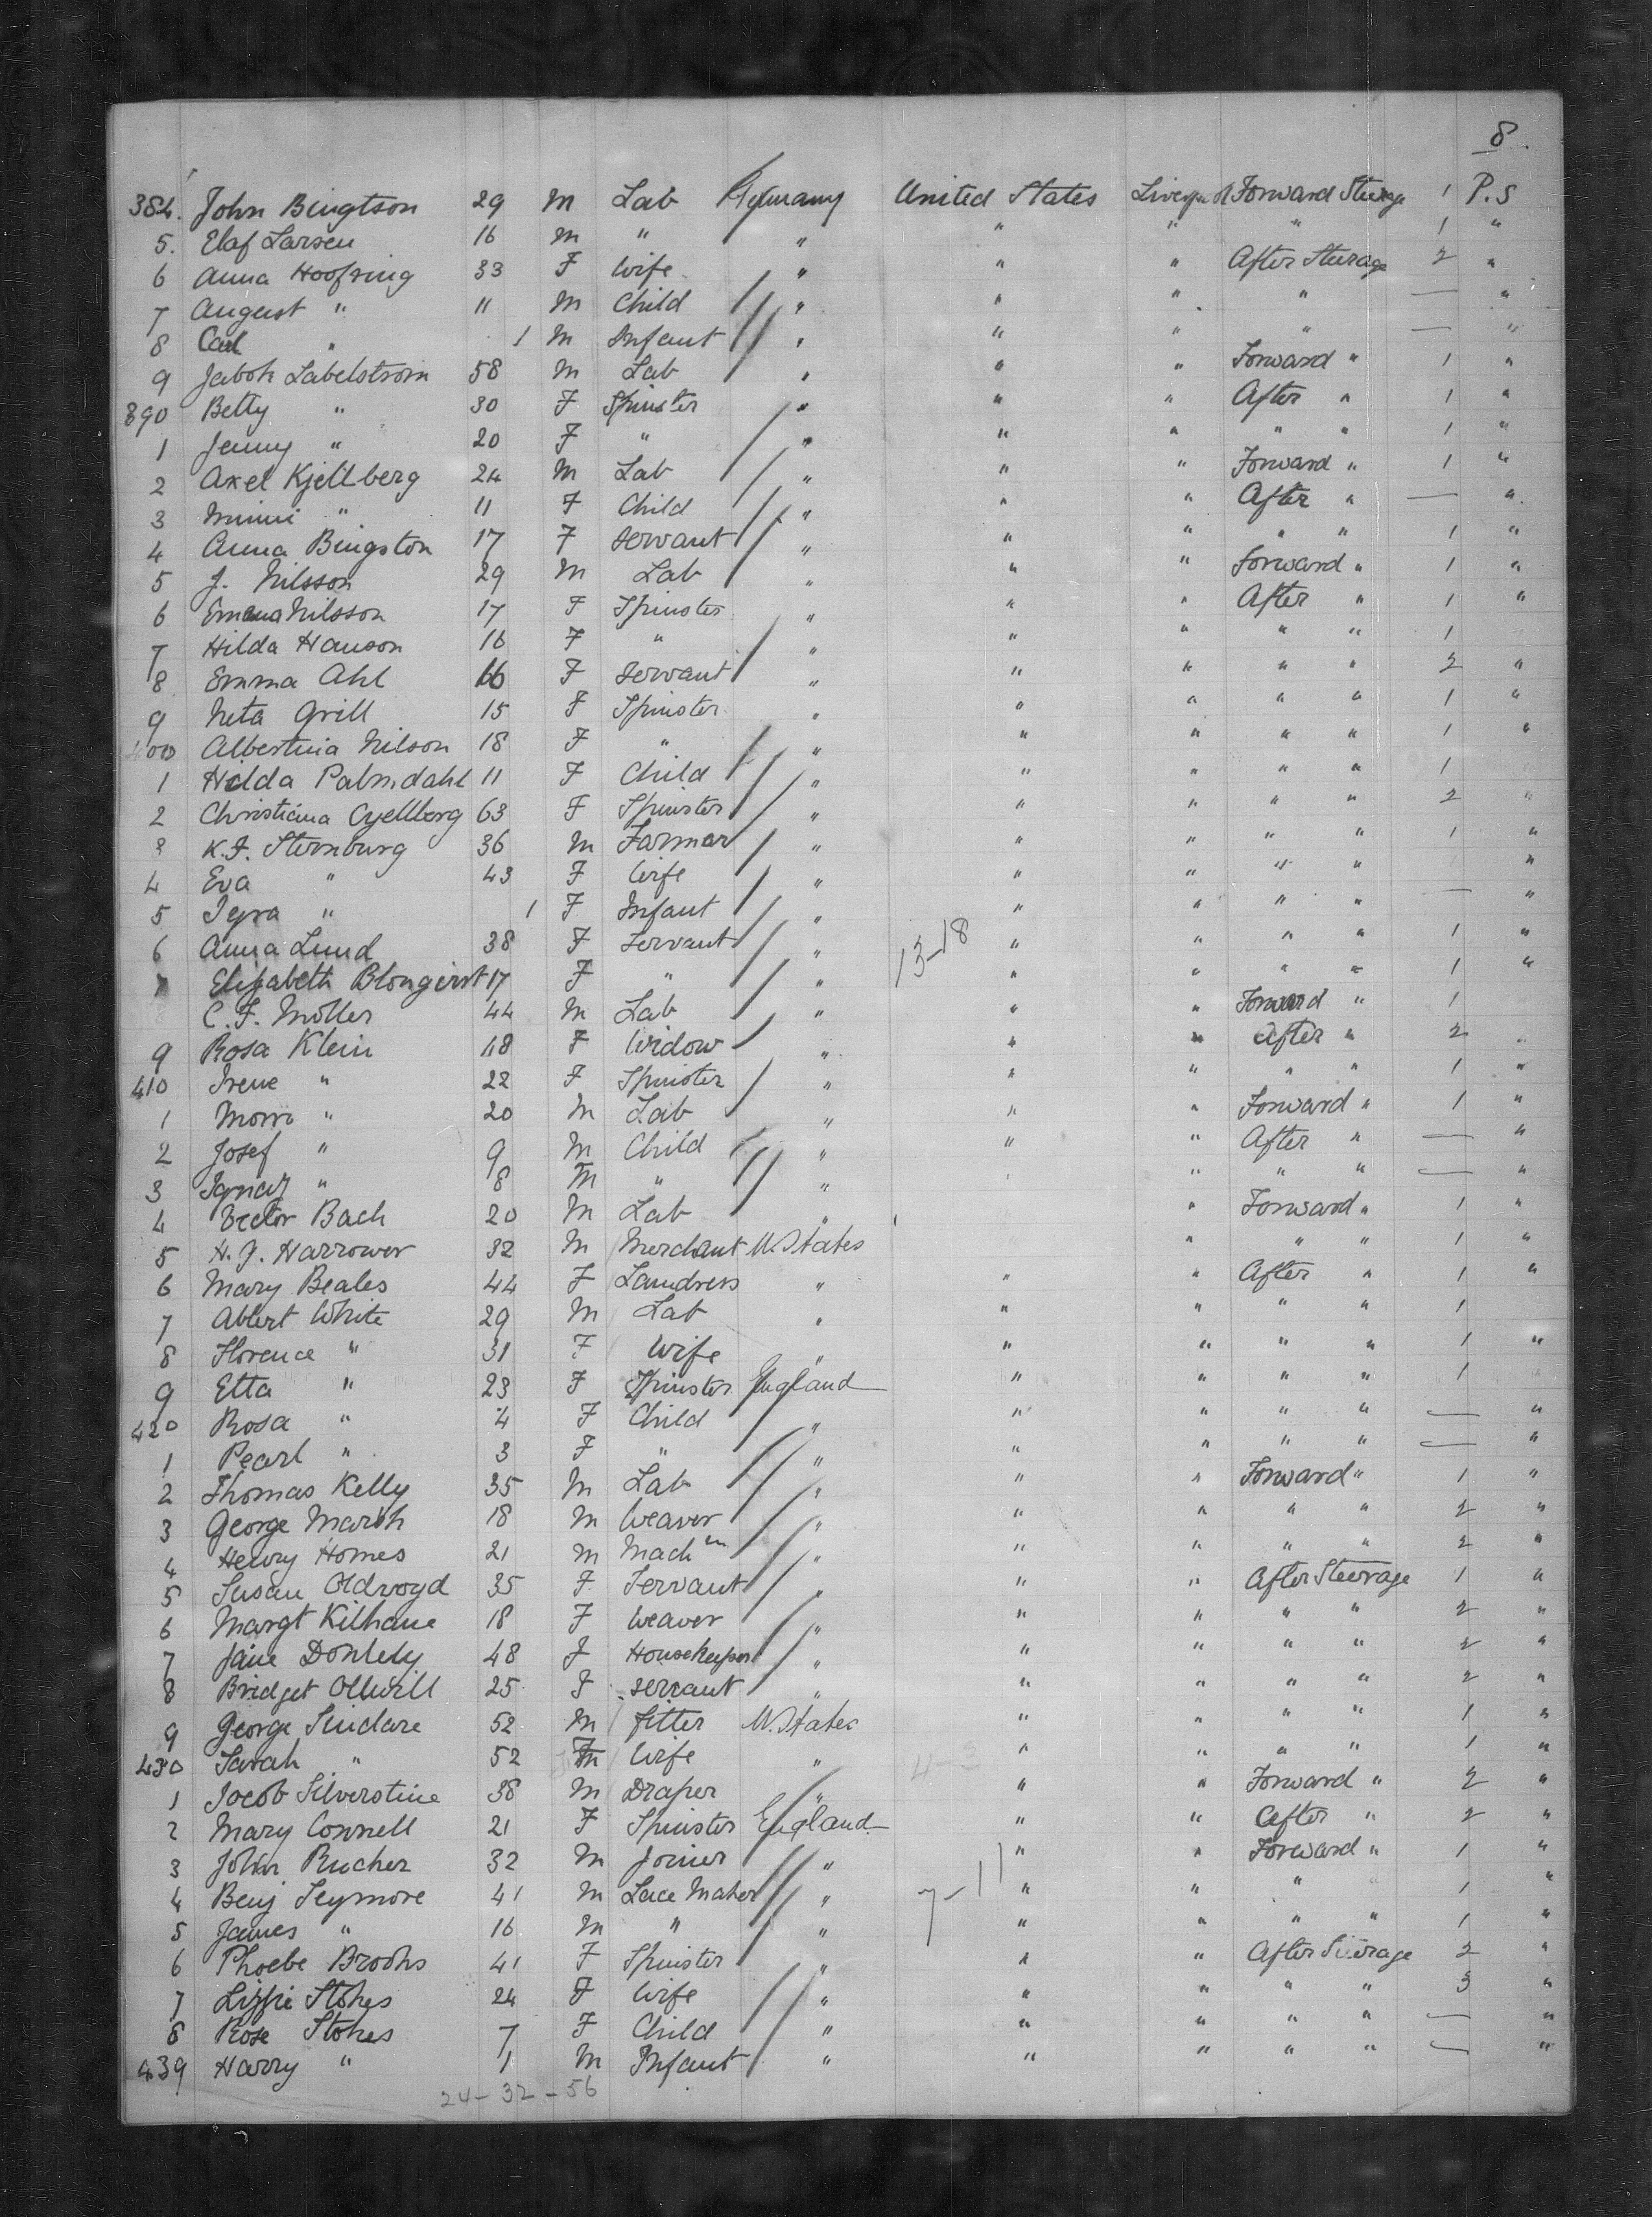 8.
384. John Bingtson 29 M Lab Germany United States Liverpool Forward Steerage 1 P.S
5. Elaf Larsen 16 M " " " " " 1 "
6 Anna Hoofring 33 F Wife " " " After Steerage 2 "
7 August " 11 M Child " " " " — "
8 Carl " 1 M Infant " " " " — "
9 Jaboh Labelstrom 58 M Lab " " " Forward " 1 "
390 Betty " 30 F Spinster " " " After " 1 "
1 Jenny " 20 F " " " " " " 1 "
2 Axel Kjellberg 24 M Lab " " " Forward " 1 "
3 Mimi " 11 F Child " " " After " — "
4 Anna Bingston 17 F Servant " " " " " 1 "
5 J. Nilsson 29 M Lab " " " Forward " 1 "
6 Emma Nilsson 17 F Spinster " " " After " 1 "
7 Hilda Hanson 16 F " " " " " " 1
8 Emma Ahl 16 F Servant " " " " " 2 "
9 Neta Grill 15 F Spinster " " " " " 1 "
400 Albertina Nilson 18 F " " " " " " 1 "
1 Hilda Palmdahl 11 F Child " " " " " 1
2 Christiana Cyellberg 63 F Spinster " " " " " 2 "
3 K.F. Sternburg 36 M Farmer " " " " " 1 "
4 Eva " 43 F Wife " " " " " "
5 Tyra " 1 F Infant " " " " " — "
6 Anna Lund 38 F Servant " 13-18 " " " " 1 "
7 Elizabeth Blongirst 17 F " " " " " " 1 "
C. F. Moller 44 M Lab " " " Forward " 1
9 Rosa Klein 48 F Widow " " " After " 2 "
410 Irene " 22 F Spinster " " " " " 1 "
1 Morri " 20 M Lab " " " Forward " 1 "
2 Josef " 9 M Child " " " After " — "
3 Ignaz " 8 M " " " " " " — "
4 Victor Bach 20 M Lab " " Forward " 1 "
5 H. J. Harrower 32 M Merchant U. States " " " 1 "
6 Mary Beales 44 F Laundress " " " After " 1 "
7 Albert White 29 M Lab " " " " " 1
8 Florence " 31 F Wife " " " " " 1 "
9 Etta " 23 F Spinster England " " " " 1 "
420 Rosa " 4 F Child " " " " " — "
1 Pearl " 3 F " " " " " " — "
2 Thomas Kelly 35 M Lab " " " Forward " 1 "
3 George Marsh 18 M Weaver " " " " " 2 "
4 Henry Homes 21 M Mach in " " " " " 2 "
5 Susan Oldroyd 35 F Servant " " " After Steerage 1 "
6 Margt Kilhane 18 F Weaver " " " " " 2 "
7 Jane Donlely 48 F Housekeeper " " " " " 2 "
8 Bridget Ollwill 25 F Servant " " " " " 2 "
9 George Sindare 52 M fitter U. States " " " " 1 "
430 Sarah " 52 F Wife " " " " " 1 "
1 Jocob Silverstine 38 M Draper " " " Forward " 2 "
2 Mary Connell 21 F Spinster England " " After " 2 "
3 John Rucher 32 M Joiner " " " Forward " 1 "
4 Benj Seymore 41 M Lace Maker " 7-11 " " " 1 "
5 James " 16 M " " " " " " 1 "
6 Phoebe Brooks 41 F Spinster " " " After Steerage 2 "
7 Lizzie Stokes 24 F Wife " " " " " 3 "
8 Rose Stokes 7 F Child " " " " " — "
439 Harry " 1 M Infant " " " " " — "
24-32-56